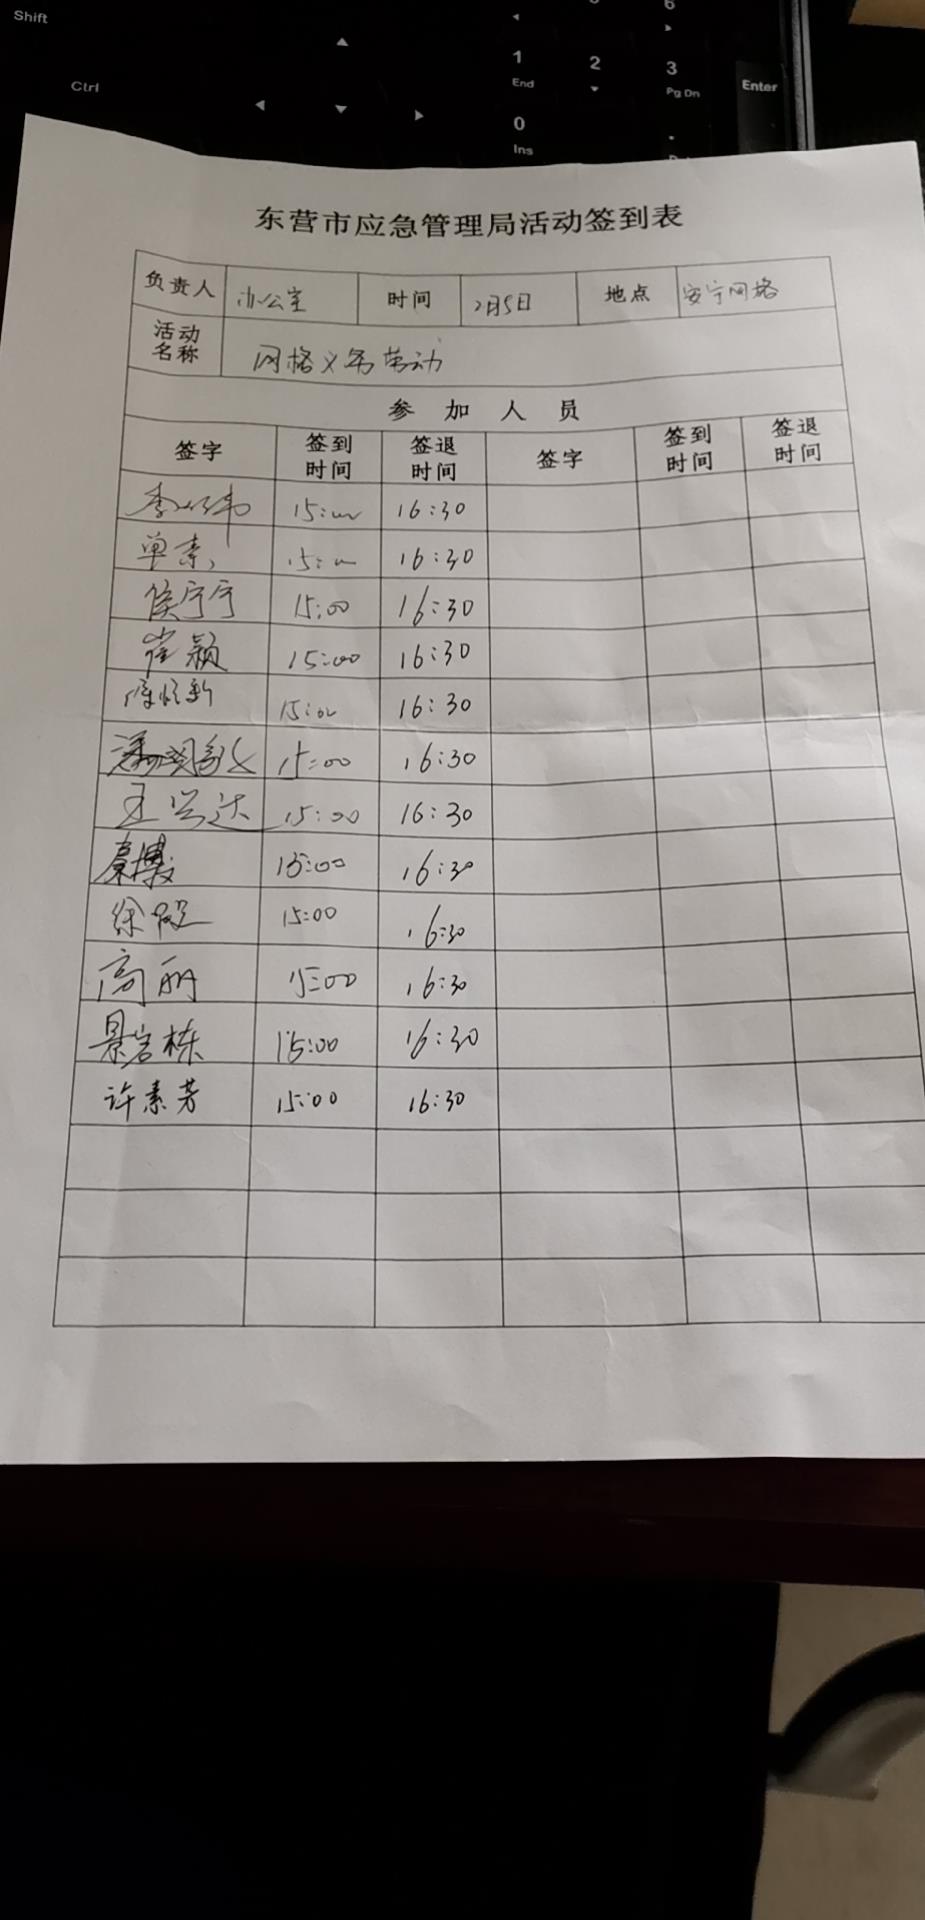 Shift
6
1 2 3
End Pg Dn Enter
Ctrl
0
Ins
东营市应急管理局活动签到表
负责人 办公室 时间 2月5日 地点 安宁网格
活动名称 网格义务劳动
参加人员
签字 签到时间 签退时间 签字 签到时间 签退时间
15:00 16:30
单素 15:00 16:30
侯宁宁 15:00 16:30
崔颖 15:00 16:30
15:00 16:30
15:00 16:30
王兴达 15:00 16:30
秦博 15:00 16:30
徐 15:00 16:30
高丽 15:00 16:30
景岩栋 15:00 16:30
许素芳 15:00 16:30